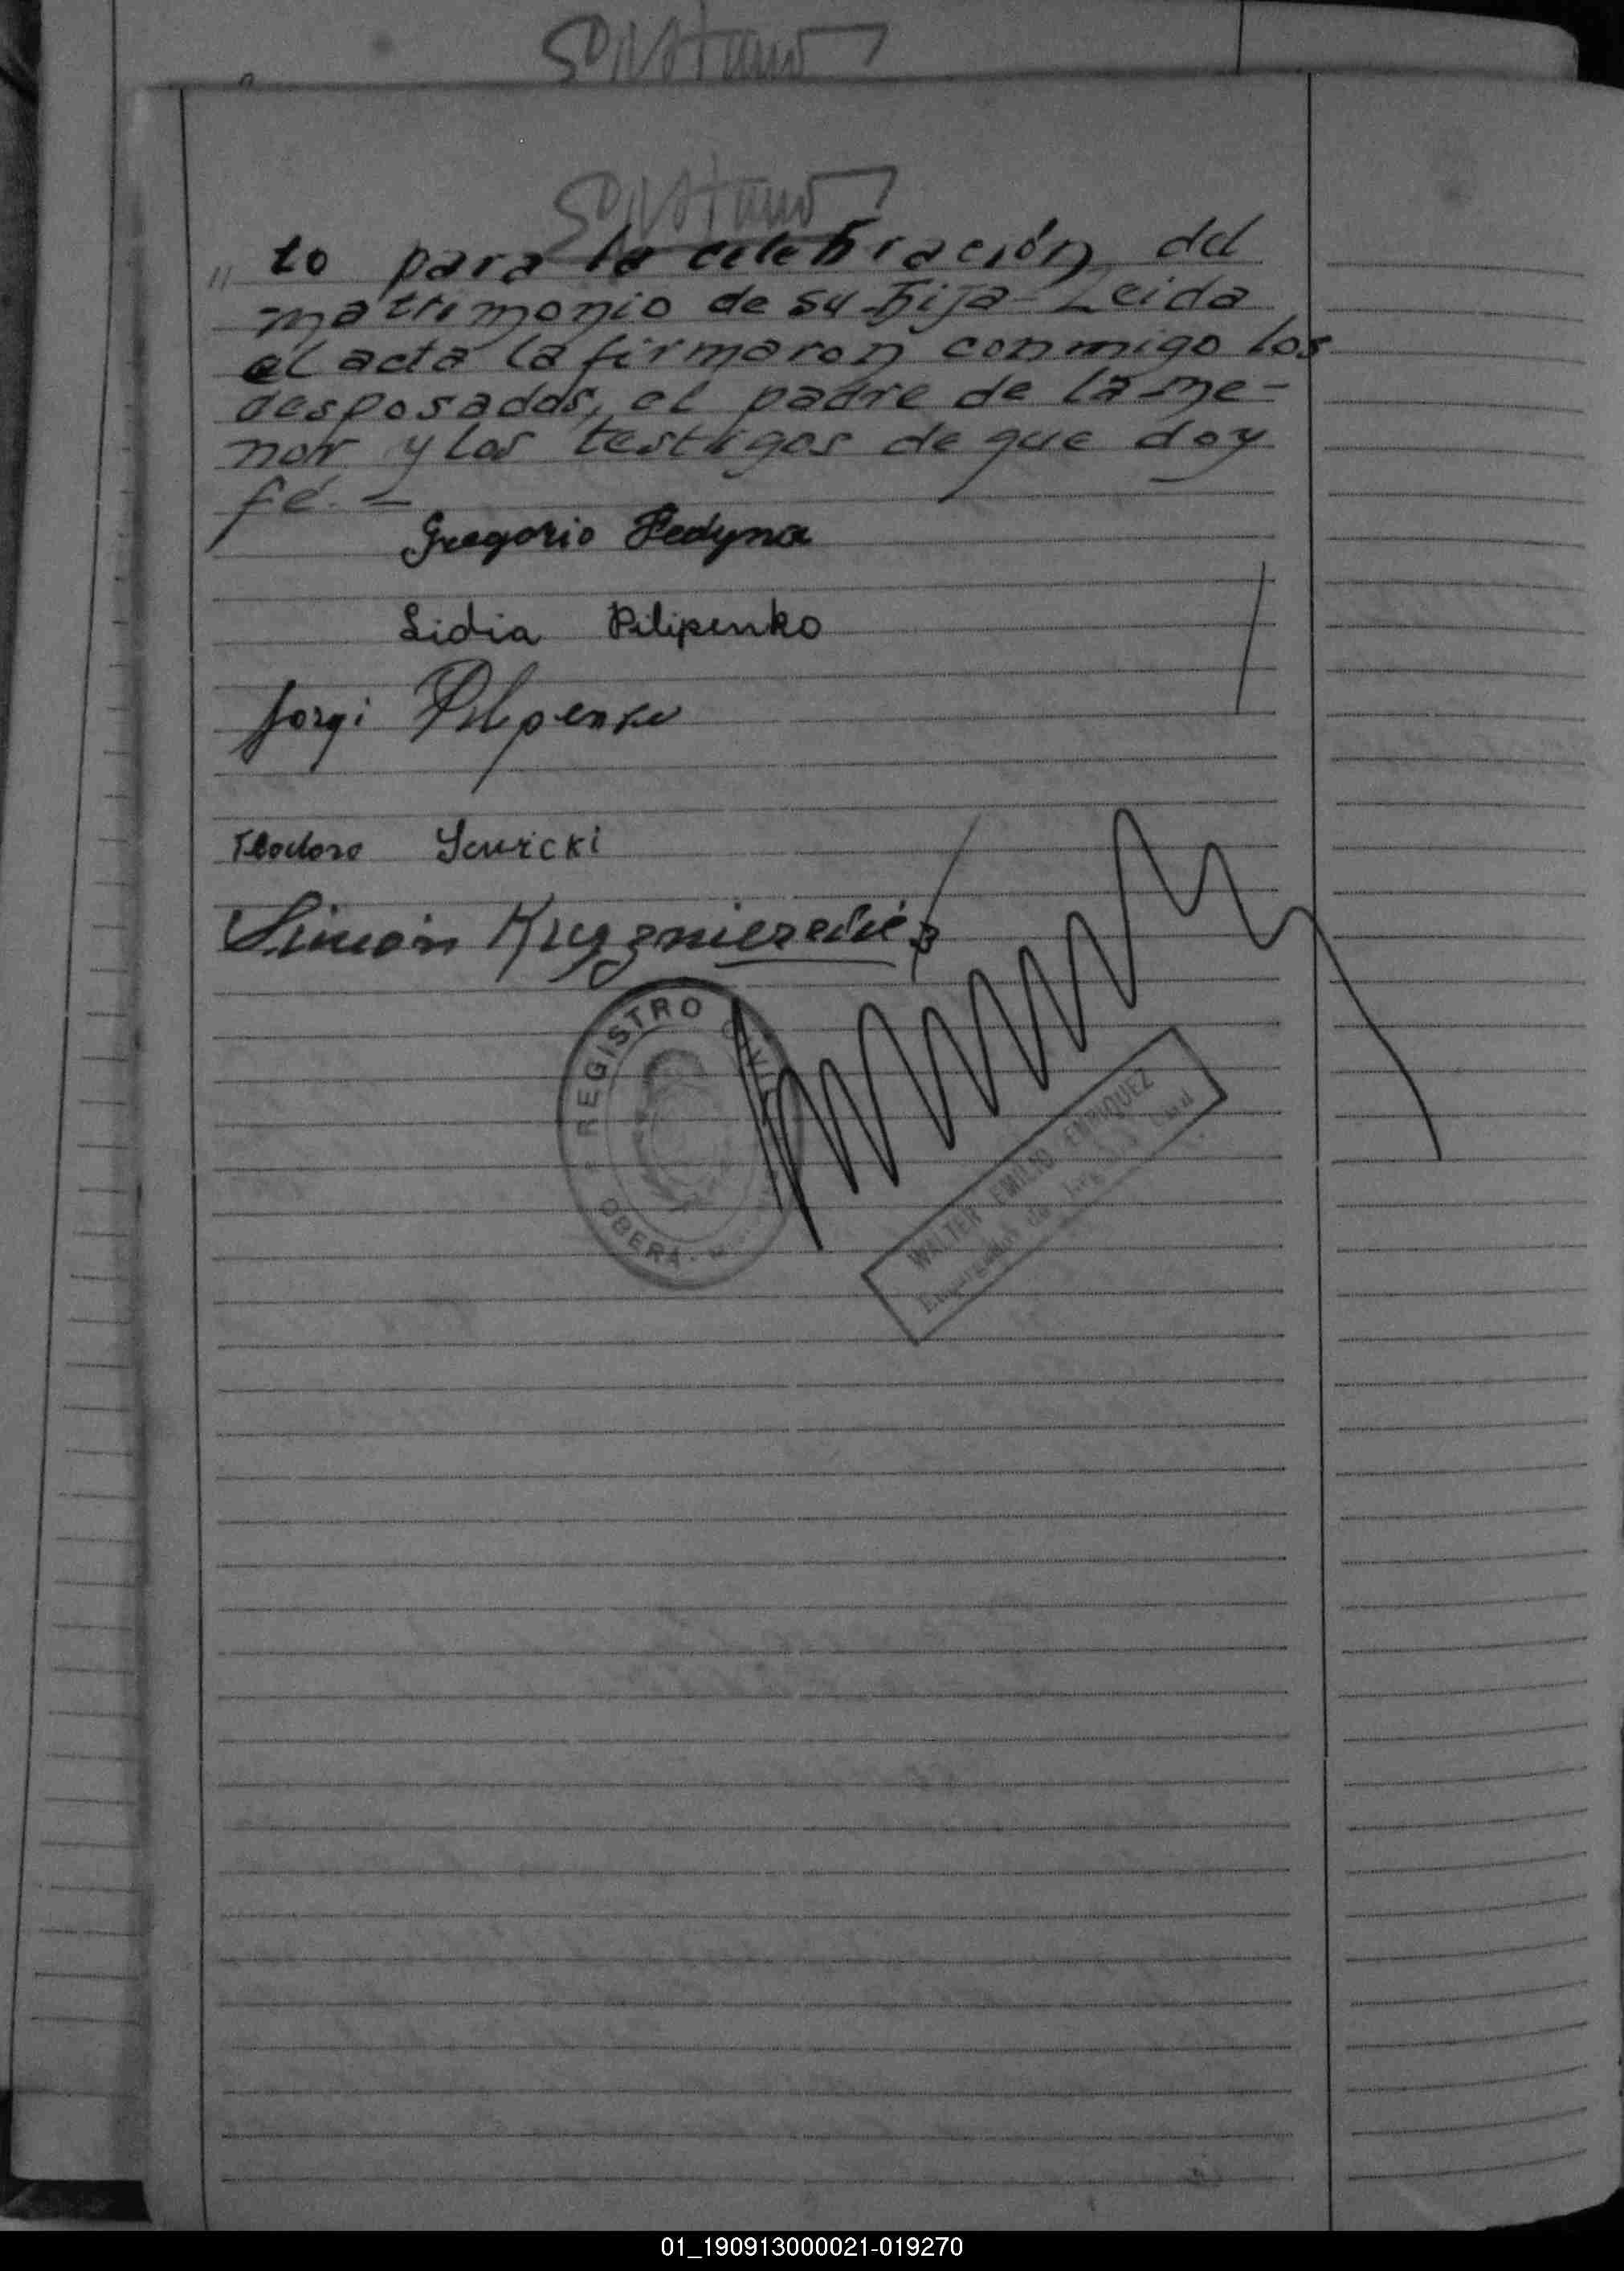 " to para la celebración del
matrimonio de su hija - Leida
el acta la firmaron conmigo los
desposados, el padre de la me-
nor y los testigos de que doy
fé. -
Gregorio Fedyna
Lidia Pilipenko
Jorgi Pilipenko
Teodoro
Simón
REGISTRO CIVIL
OBERA
WALTER EMILIO ENRIQUEZ
Encargado de Reg. Civil
01_190913000021-019270